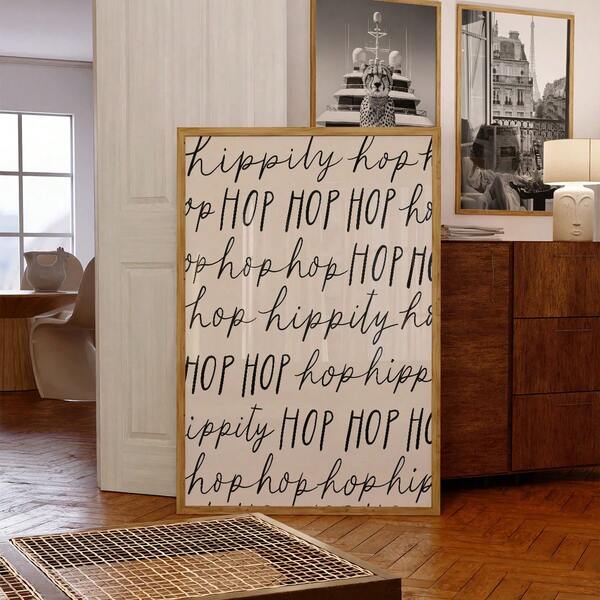 hippity hop h
op HOP HOP HOP ho
op hop hop HOP H
hop hippity ho
HOP HOP hop hipp
ippity HOP HOP HO
hop hop hop hip